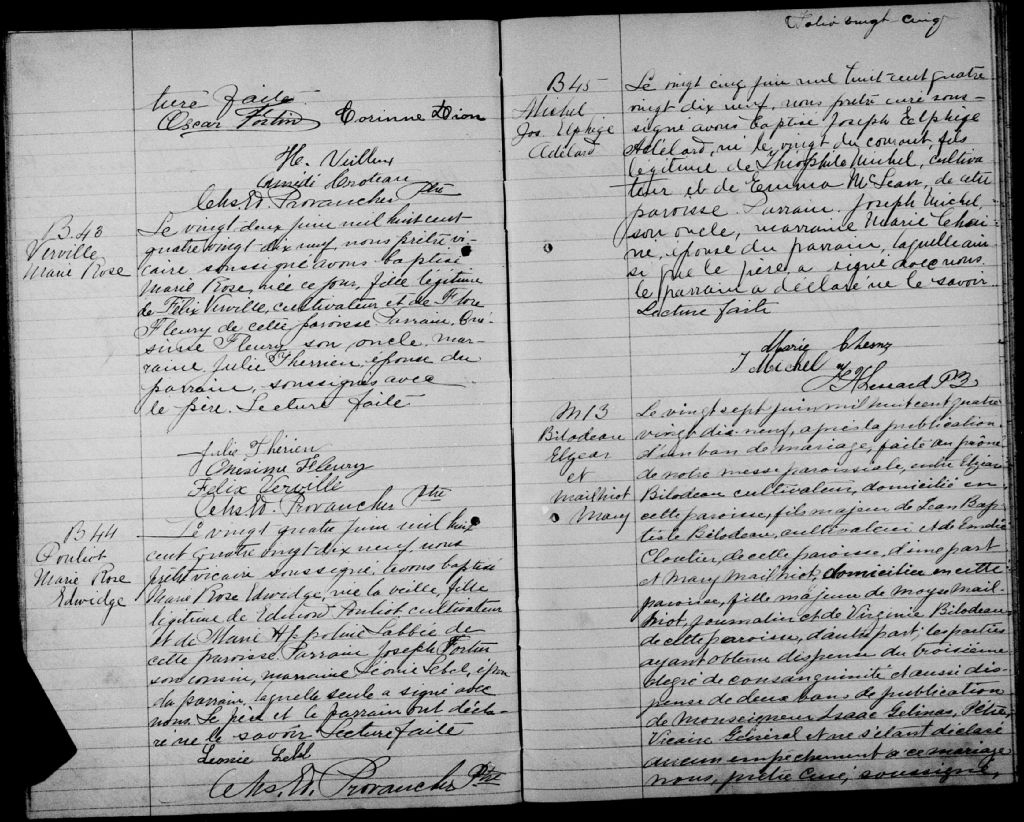 ture faite.
Oscar Fortin Corinne Dion
H. Veilleux
Chs. Ed. Provancher Ptre
B.43
Verville
Marie Rose
Le vingt deux juin mil huit cent
quatre vingt dix neuf, nous prêtre vi-
caire soussigné avons baptisé
Marie Rose, née ce jour, fille légitime
de Félix Verville, cultivateur et de Flore
Fleury de cette paroisse. Parrain, Oné-
sime Fleury son oncle, mar-
raine, Julie Therrien, épouse du
parrain, soussignés avec
le père. Lecture faite
Julie Thérien
Onesime Fleury
Felix Verville
Chs. Ed. Provancher Ptre
B 44
Pouliot
Marie Rose
Edwidge
Le vingt quatre juin mil huit
cent quatre vingt-dix neuf, nous
prêtre vicaire soussigné, avons baptisé
Marie Rose Edwidge, née la veille, fille
légitime de Edmond Pouliot cultivateur
et de Marie Appoline Labbée de
cette paroisse. Parrain Joseph Fortin
son cousin, marraine Léonie Lebel, épouse
du parrain, laquelle seule a signé avec
nous. Le père et le parrain ont décla-
ré ne le savoir. Lecture faite
Léonie Lebel
Chs. Ed. Provancher Ptre
Folio vingt cinq
B 45
Michel
Jos. Elphège
Adélard
Le vingt cinq juin mil huit cent quatre
vingt-dix neuf, nous prêtre curé sous-
signé avons baptisé Joseph Elphège
Adélard, né le vingt du courant, fils
légitime de Théophile Michel, cultiva
teur et de Emma McLean, de cette
paroisse. Parrain Joseph Michel,
son oncle, marraine Marie Chai-
né, épouse du parrain, laquelle ain
si que le père a signé avec nous.
le parrain a déclaré ne le savoir.
Lecture faite
Marie
T Michel
Lessard
M 13
Bilodeau
Elzear
et
Mailhiot
Mary
Le vingt sept juin mil huit cent quatre
vingt dix-neuf, après la publication
d'un ban de mariage, faite au prône
de notre messe paroissiale, entre Elzéar
Bilodeau cultivateur, domicilié en
cette paroisse, fils majeur de Jean Bap
tiste Bilodeau, cultivateur et de Emélie
Cloutier, de cette paroisse, d'une part
et Mary Mailhiot, domiciliée en cette
paroisse, fille majeure de Moyse Mail-
hiot, journalier et de Virginie Bilodeau
de cette paroisse, d'autre part; les parties
ayant obtenu dispense du troisième
degré de consanguinité et aussi dis-
pense de deux bans de publication
de Monseigneur Isaac Gélinas, Prêtre,
Vicaire Général et ne s'étant déclaré
aucun empêchement à ce mariage
nous, prêtre curé, soussigné,